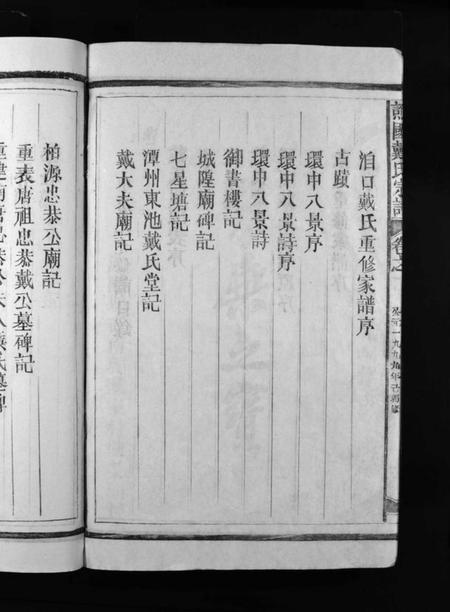 譙國戴氏宗譜
卷之
洎口戴氏重修家譜序
古蹟
環中八景序
環中八景詩序
環中八景詩
御書樓記
城隍廟碑記
七星塘記
潭州東池戴氏堂記
戴大夫廟記
柏源忠恭公廟記
重表唐祖忠恭戴公墓碑記